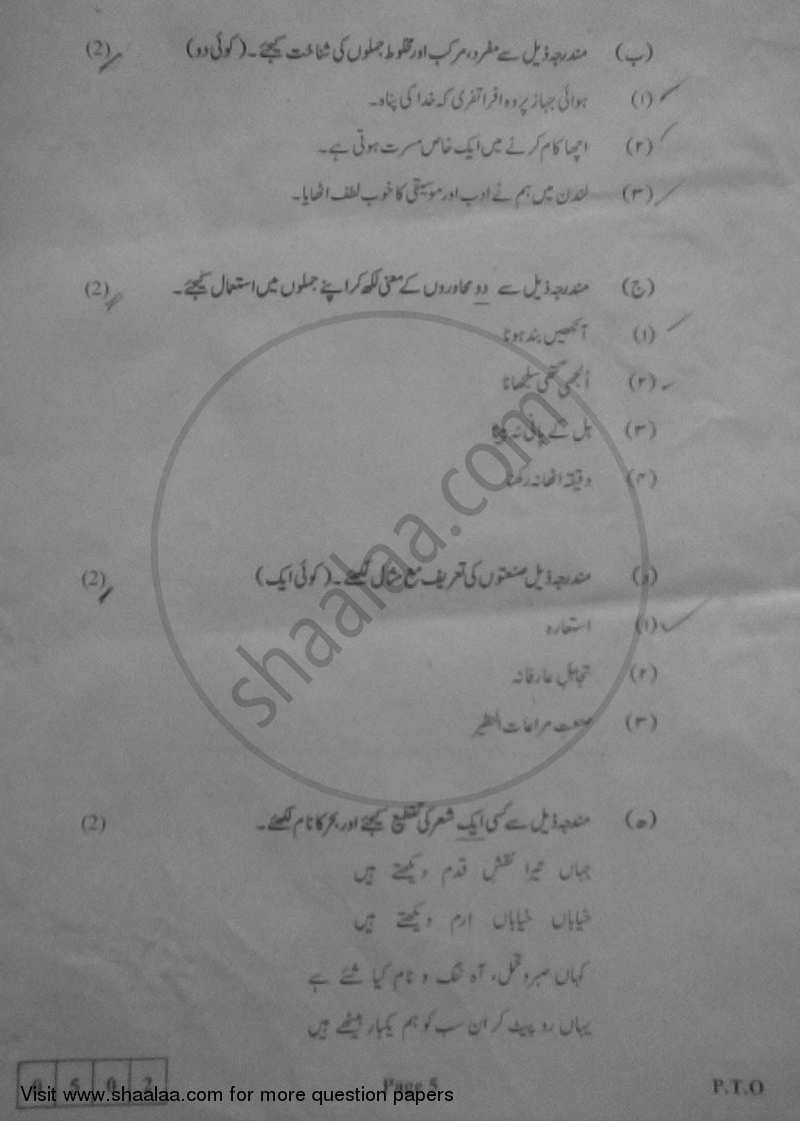 (ب) مندرجہ ذیل سے مفرد، مرکب اور مخلوط جملوں کی شناخت کیجئے۔ (کوئی دو) (2)
(۱) ہوائی جہاز پر وہ افراتفری کہ خدا کی پناہ۔
(۲) اچھا کام کرنے میں ایک خاص مسرت ہوتی ہے۔
(۳) لندن میں ہم نے ادب اور موسیقی کا خوب لطف اٹھایا۔
(ج) مندرجہ ذیل سے دو محاوروں کے معنی لکھ کر اپنے جملوں میں استعمال کیجئے۔ (2)
(۱) آنکھیں بند ہونا
(۲) اُلجھی گتھی سلجھانا
(۳) ہل کے پانی نہ پینا
(۴) دقیقہ اٹھا نہ رکھنا
(د) مندرجہ ذیل صنعتوں کی تعریف مع مثال لکھئے۔ (کوئی ایک) (2)
(۱) استعارہ
(۲) تجاہلِ عارفانہ
(۳) صنعت مراعات النظیر
(ہ) مندرجہ ذیل سے کسی ایک شعر کی تقطیع کیجئے اور بحر کا نام لکھئے۔ (2)
جہاں تیرا نقشِ قدم دیکھتے ہیں
خیاباں خیاباں ارم دیکھتے ہیں
کہاں صبر و تحمل، آہ ننگ و نام کیا شئے ہے
یہاں رو پیٹ کر ان سب کو ہم یکبار بیٹھے ہیں
0 5 0 2 Page 5 P.T.O
Visit www.shaalaa.com for more question papers
shaalaa.com